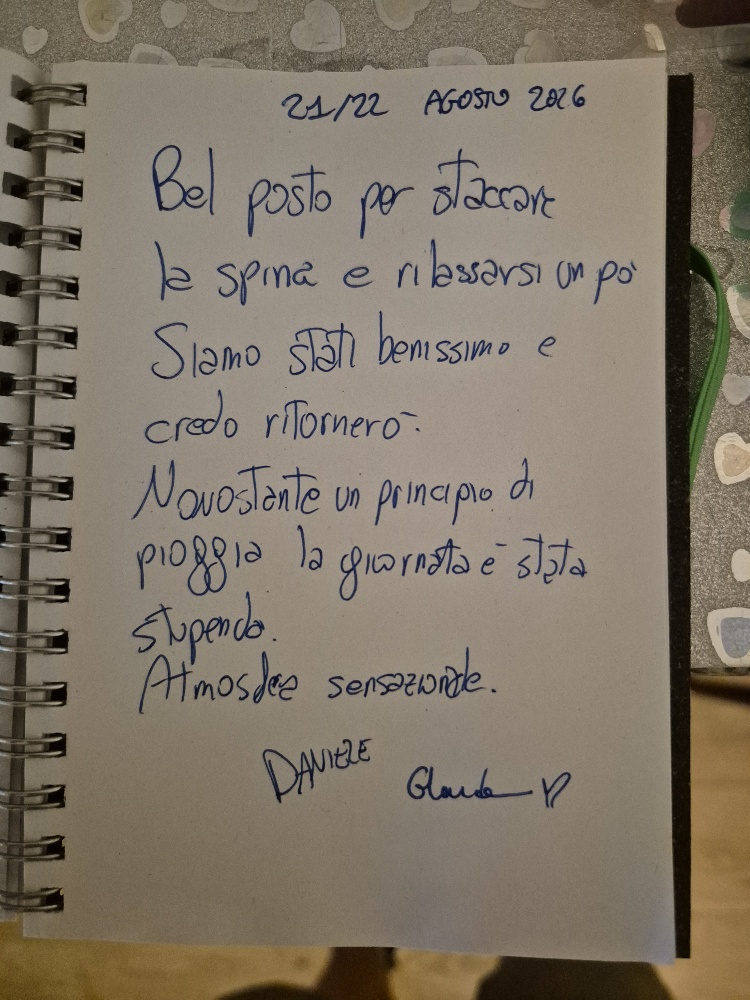 21/22 AGOSTO 2026
Bel posto per staccare
la spina e rilassarsi un pò
Siamo stati benissimo e
credo ritornerò.
Nonostante un principio di
pioggia la giornata è stata
stupenda.
Atmosfera sensazionale.
DANIELE